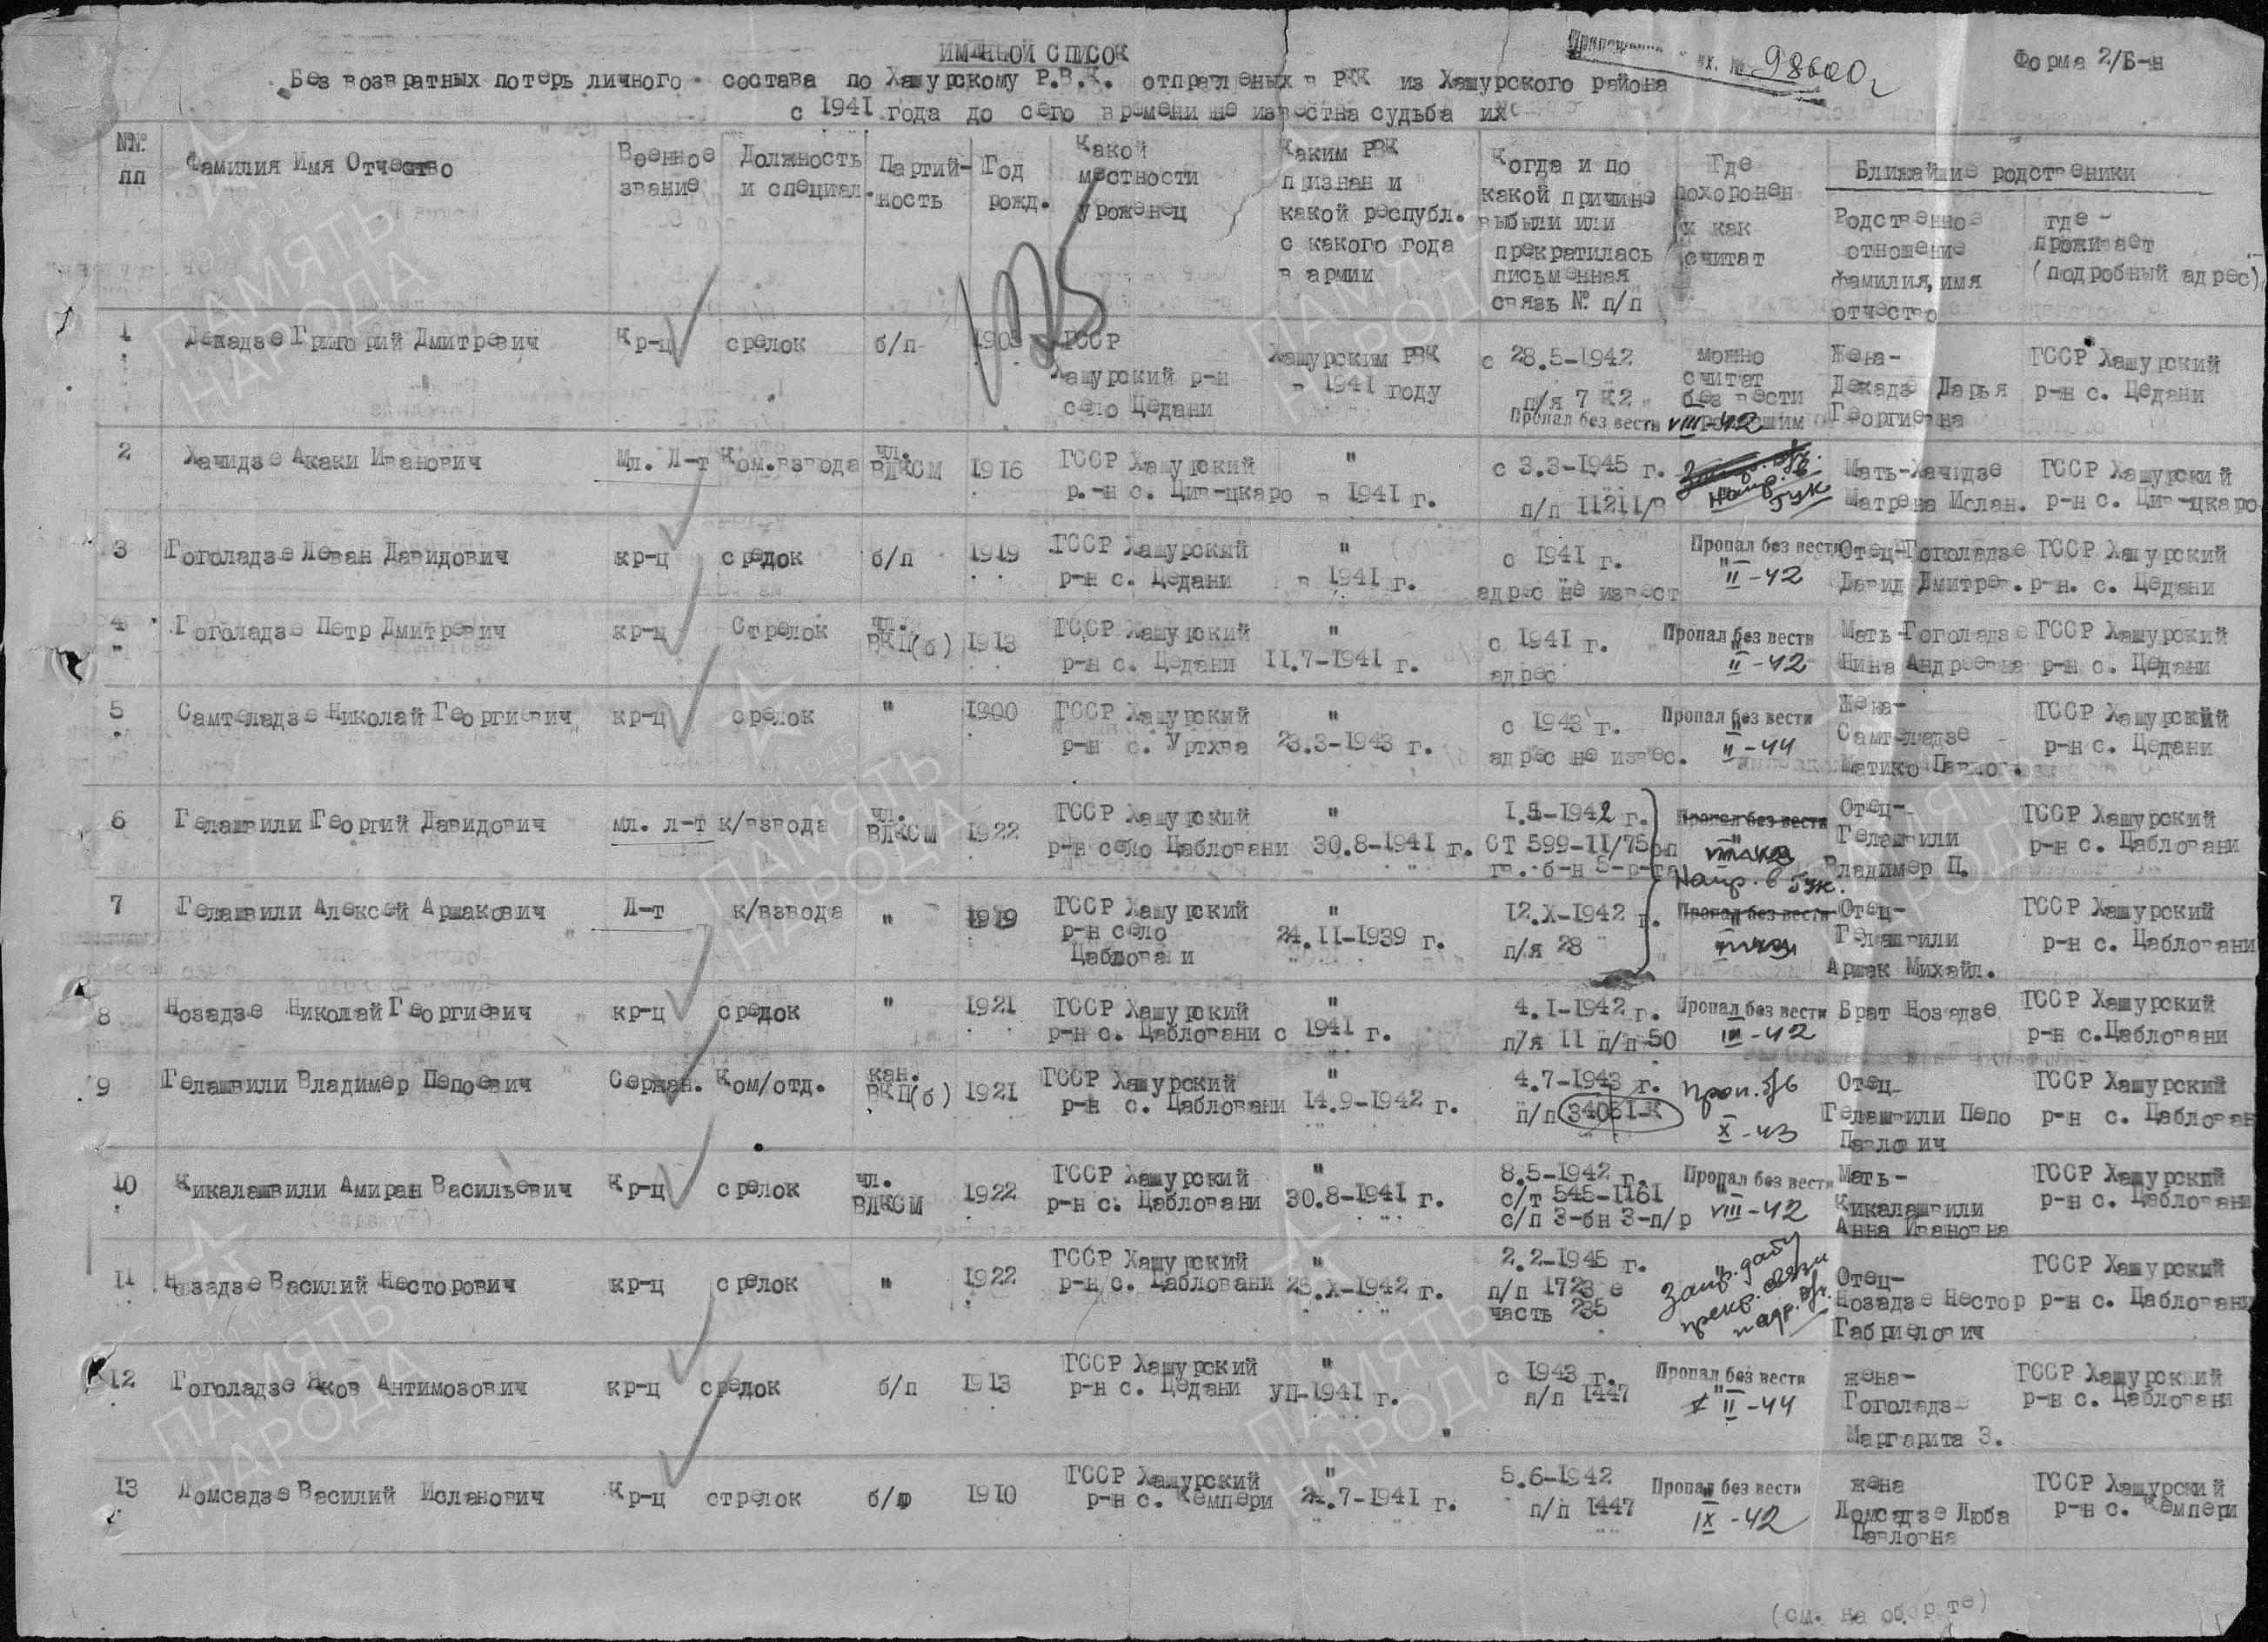 ИМЕННОЙ СПИСОК
Форма 2/Б-н
вх. № 98600
Без возвратных потерь личного состава по Хашурскому Р.В.К. отправленых в РКК из Хашурского района
с 1941 года до сего времени не известна судьба их
№№ пп
Фамилия Имя Отчество
Военное звание
Должность и специал.
Партий-ность
Год рожд.
Какой местности уроженец
Каким РВК признан и какой республ. с какого года в армии
Когда и по какой причине выбыли или прекратилась письменная связь № п/п
Где похоронен и как считат
Ближайшие родственики
Родственное отношение фамилия, имя отчество
где - проживает (подробный адрес)
1 Декадзе Григорий Дмитревич Кр-ц срелок б/п 1905 ГССР Хашурским РВК с 28.5-1942 можно Жена- ГССР Хашурский
Хашурский р-н в 1941 году считат Декадзе Дарья р-н с. Цедани
село Цедани п/я 7 К2 без вести Георгиевна
Пропал без вести VIII-42
2 Хачидзе Акаки Иванович Мл. Л-т Ком.взвода чл. ВЛКСМ 1916 ГССР Хашурский " с 3.3-1945 г. Мать-Хачидзе ГССР Хашурский
р.-н с. Цив-цкаро в 1941 г. п/п 11211/В Напр. ГУК Матрена Ислан. р-н с. Цив-цкаро
3 Гоголадзе Леван Давидович кр-ц средок б/п 1919 ГССР Хашурский " с 1941 г. Пропал без вести Отец-Гоголадзе ГССР Хашурский
р-н с. Цедани в 1941 г. адрес не извест II-42 Давид Дмитрев. р-н. с. Цедани
4 Гоголадзе Петр Дмитревич кр-ц Стрелок чл. ВКП(б) 1913 ГССР Хашурский " с 1941 г. Пропал без вести Мать-Гоголадзе ГССР Хашурский
р-н с. Цедани 11.7-1941 г. адрес II-42 Нина Андреевна р-н с. Цедани
5 Самтеладзе Николай Георгиевич кр-ц срелок " 1900 ГССР Хашурский " с 1943 г. Пропал без вести Жена- ГССР Хашурский
р-н с. Уртхва 23.3-1943 г. адрес не извес. II-44 Самтеладзе р-н с. Цедани
Матико Павлов.
6 Гелашвили Георгий Давидович мл. л-т к/взвода чл. ВЛКСМ 1922 ГССР Хашурский " 1.5-1942 г. Пропал без вести Отец- ГССР Хашурский
р-н село Цабловани 30.8-1941 г. СТ 599-11/75 сп Гелашвили р-н с. Цабловани
гв. б-н 5-р-та Напр. в ГУК. Владимер П.
7 Гелашвили Алексей Аршакович Л-т к/взвода " 1919 ГССР Хашурский " 12.X-1942 г. Пропал без вести Отец- ГССР Хашурский
р-н село 24.11-1939 г. п/я 28 Гелашвили р-н с. Цабловани
Цабловани Аршак Михайл.
8 Нозадзе Николай Георгиевич кр-ц средок " 1921 ГССР Хашурский " 4.1-1942 г. Пропал без вести Брат Нозадзе ГССР Хашурский
р-н с. Цабловани с 1941 г. п/я 11 п/п 50 III-42 р-н с.Цабловани
9 Гелашвили Владимер Пепоевич Сержан. Ком/отд. кан. ВКП(б) 1921 ГССР Хашурский " 4.7-1943 г. Проп. б/в Отец- ГССР Хашурский
р-н с. Цабловани 14.9-1942 г. п/п 34061-К X-43 Гелашвили Пепо р-н с. Цаблован
Павлович
10 Кикалашвили Амиран Васильевич Кр-ц срелок чл. ВЛКСМ 1922 ГССР Хашурский " 8.5-1942 г. Пропал без вести Мать- ГССР Хашурский
р-н с. Цабловани 30.8-1941 г. с/т 545-1161 VIII-42 Кикалашвили р-н с. Цабловани
с/п 3-бн 3-п/р Анна Ивановна
11 Нозадзе Василий Несторович кр-ц срелок " 1922 ГССР Хашурский " 2.2-1945 г. Запр. дату ГССР Хашурский
р-н с. Цабловани 25.X-1942 г. п/п 1723 е прекр. связи Отец- Нозадзе Нестор р-н с. Цабловани
часть 235 Габриелович
12 Гоголадзе Яков Антимозович кр-ц средок б/п 1913 ГССР Хашурский " с 1943 г. Пропал без вести жена- ГССР Хашурский
р-н с. Цедани УП-1941 г. п/п 1447 II-44 Гоголадзе р-н с. Цабловани
Маргарита З.
13 Ломсадзе Василий Исланович Кр-ц стрелок б/п 1910 ГССР Хашурский " 5.6-1942 Пропал без вести жена ГССР Хашурский
р-н с. Кемпери 24.7-1941 г. п/п 1447 IX-42 Ломсадзе Люба р-н с. Кемпери
Павловна
(см. на обороте)
ПАМЯТЬ НАРОДА
1941 1945